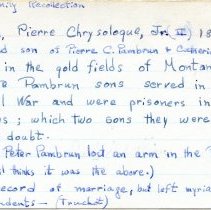 mily Recollection
, Pierre Chrysologue, Jr. II) 18
d son of Pierre C. Pambrun & Catherin
in the gold fields of Montan
e Pambrun sons served in
l War and were prisoners in
s ; which two sons they were
doubt.
Peter Pambrun lost an arm in the
l thinks it was the above.)
ecord of marriage, but left myria
udents — (Truchot)